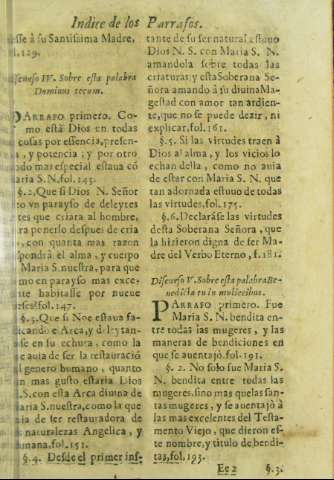 Indice de los Parrafos.
esse à su Santissima Madre,
fol.129.
Discurso IV. Sobre esta palabra
Dominus tecum.
PARRAFO primero. Co-
mo està Dios en todas
cosas por essencia, presen-
, y potencia; y por otro
do mas especial estava cõ
aria S.N.fol.143.
§.2. Que si Dios N. Señor
zo vn parayso de deleytes
tes que criara al hombre,
ra ponerlo despues de cria
, con quanta mas razon
pondrà el alma, y cuerpo
Maria S. nuestra, para que
mo en parayso mas exce-
te habitasse por nueue
ses? fol.147.
§.3. Que si Noe estava fa-
icando e Arca, y d leytan-
se en su echura, como la
e auia de ser la restauraciõ
l genero humano, quanto
n mas gusto estaria Dios
.S. con esta Arca diuina de
aria S. nuestra, como la que
ia de ser restauradora de
s naturalezas Angelica, y
umana. fol.151.
§.4. Desde el primer ins-
tante de su ser natural estuuo
Dios N. S. con Maria S. N.
amandola sobre todas las
criaturas; y esta Soberana Se-
ñora amando à su diuina Ma-
gestad con amor tan ardien-
te, que no se puede dezir, ni
explicar, fol.161.
§.5. Si las virtudes traen à
Dios al alma, y los vicios lo
echan della, como no auia
de estar con Maria S. N. que
tan adornada estuuo de todas
las virtudes, fol.175.
§.6. Declaràse las virtudes
desta Soberana Señora, que
la hizieron digna de ser Ma-
dre del Verbo Eterno, f.181.
Discurso V. Sobre esta palabra Be-
nedicta tu in mulieribus.
PARRAFO primero. Fue
Maria S. N. bendita en-
tre todas las mugeres, y las
maneras de bendiciones en
que se auentajò. fol.191.
§. 2. No solo fue Maria S.
N. bendita entre todas las
mugeres, sino mas que las san-
tas mugeres, y se auentajò à
las mas excelentes del Testa-
mento Viejo, que dieron es-
te nombre, y titulo de bendi-
tas, fol.193.
Ee 2 §.3.